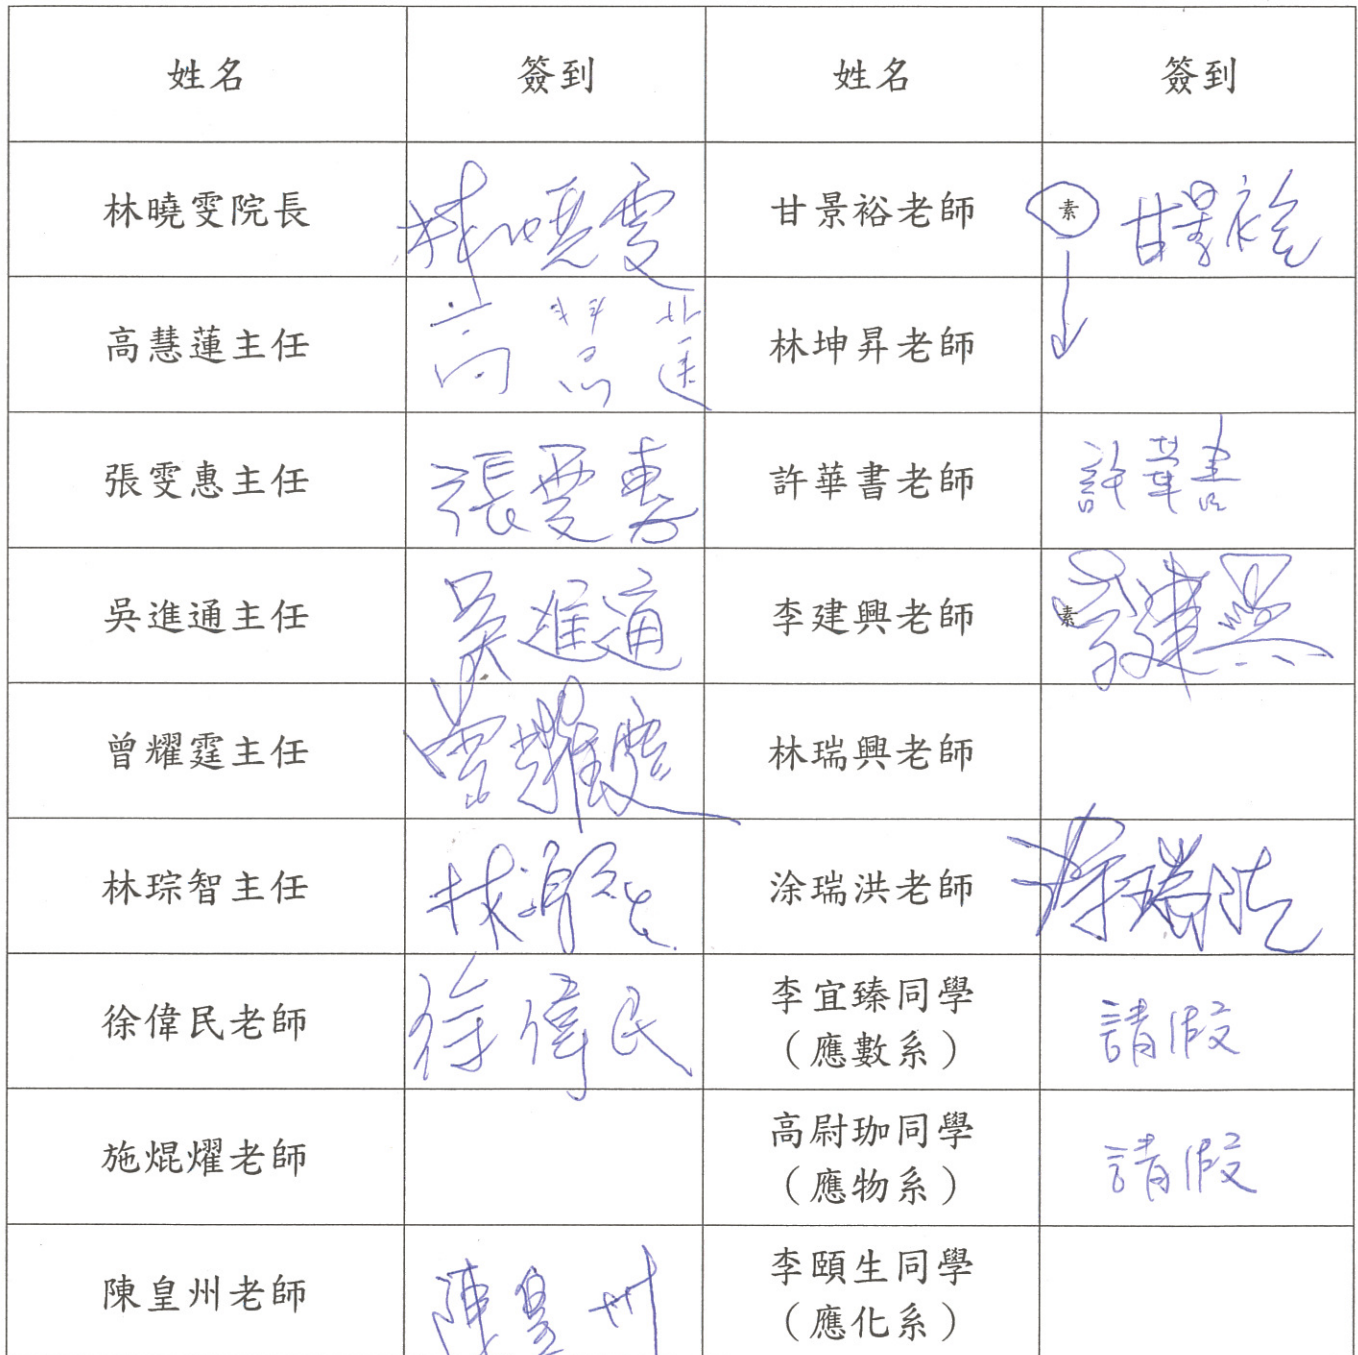 姓名 簽到 姓名 簽到
林曉雯院長 林曉雯 甘景裕老師 素 甘景裕
高慧蓮主任 高慧蓮 林坤昇老師
張雯惠主任 張雯惠 許華書老師 許華書
吳進通主任 吳進通 李建興老師 素 李建興
曾耀霆主任 曾耀霆 林瑞興老師
林琮智主任 林琮智 涂瑞洪老師 涂瑞洪
徐偉民老師 徐偉民 李宜臻同學
（應數系） 請假
施焜燿老師 高尉珈同學
（應物系） 請假
陳皇州老師 陳皇州 李頤生同學
（應化系）